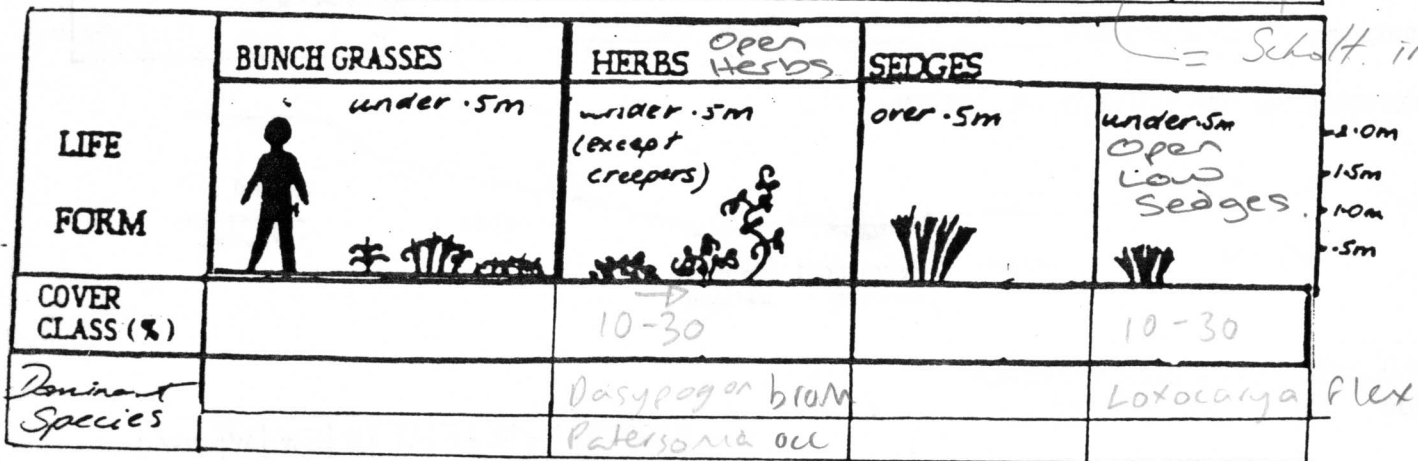 = Scholt. in
BUNCH GRASSES
HERBS Open Herbs
SEDGES
LIFE FORM
under .5m
under .5m
(except
creepers)
over .5m
under .5m
Open
Low
Sedges.
2.0m
1.5m
1.0m
.5m
COVER
CLASS (%)
10-30
10-30
Dominant
Species
Dasypogon brom
Loxocarya flex
Patersonia occ